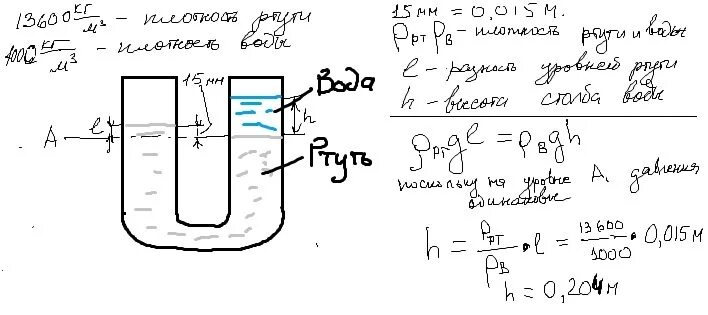 13600 кг/м³ – плотность ртути
1000 кг/м³ – плотность воды
15 мм
Вода
ℓ
h
А
Ртуть
15 мм = 0,015 м.
ρрт ρв – плотность ртути и воды
ℓ – разность уровней ртути
h – высота столба воды
ρрт gℓ = ρв gh
поскольку на уровне А, давления
одинаковы
h = ρрт/ρв · ℓ = 13600/1000 · 0,015 м
h = 0,204 м